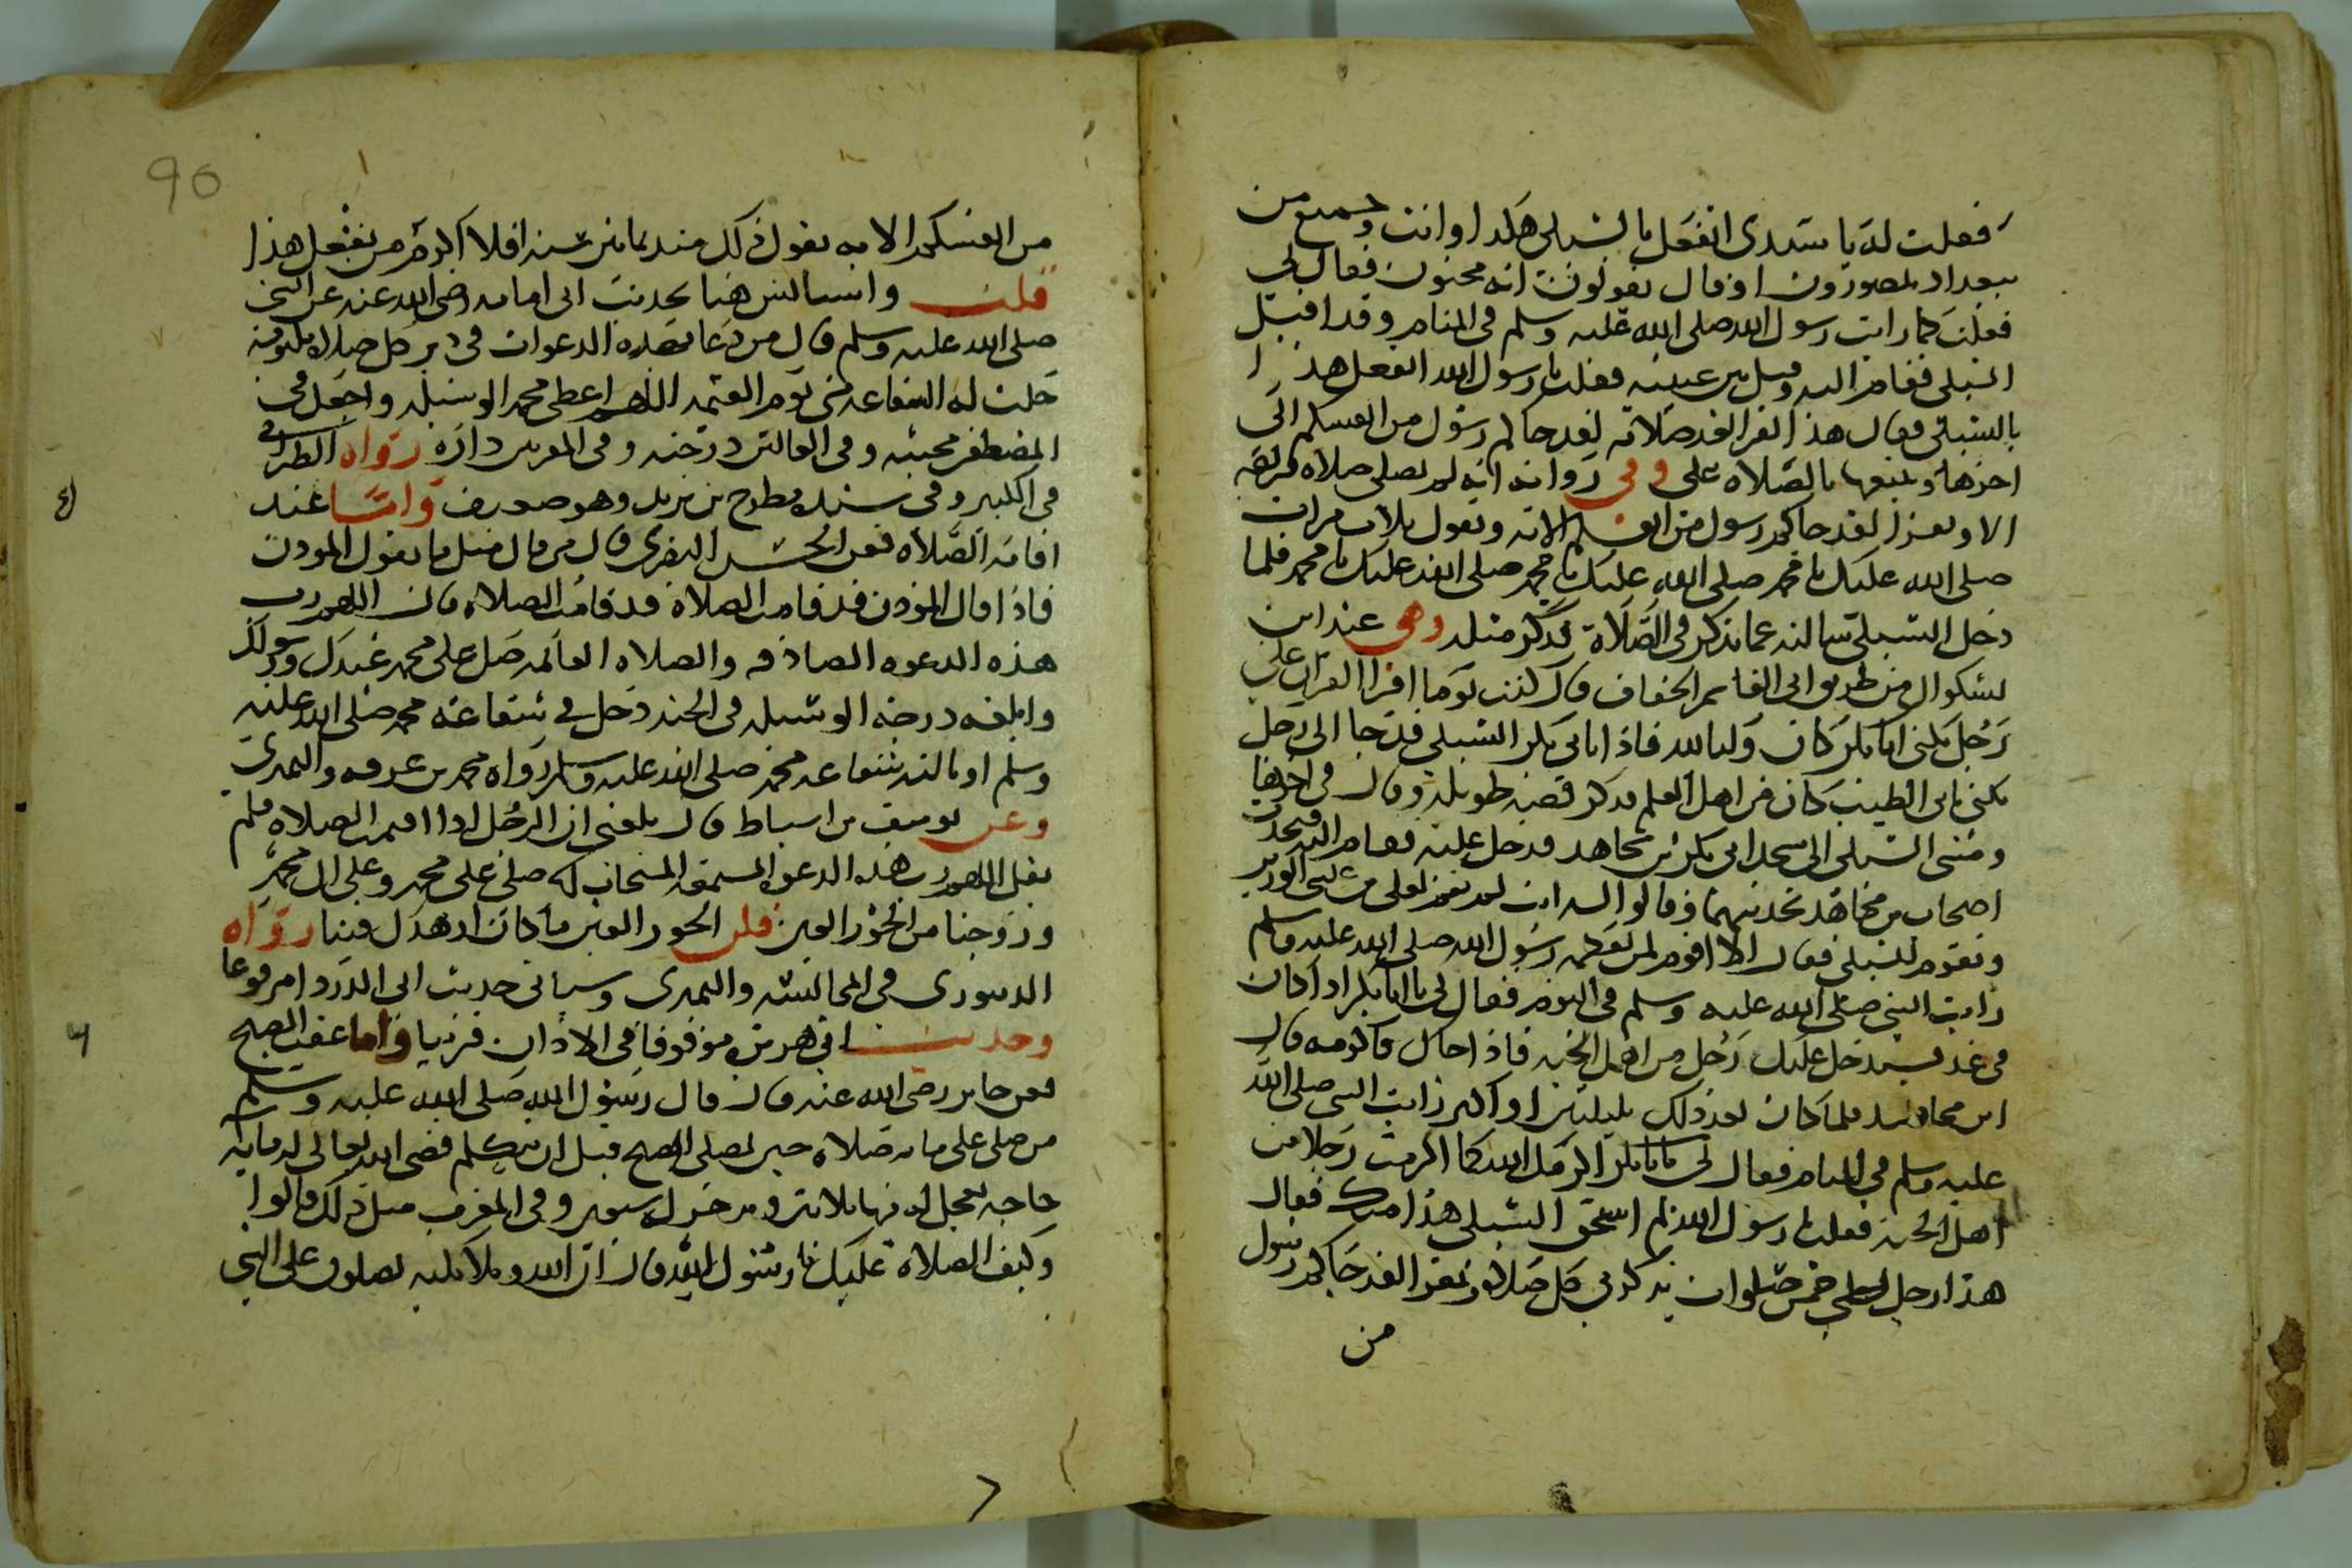 فقلت له يا سيدى اتفعل بالشبلى هكذا وانت وجميع من
ببغداد يتصورون او قال يقولون انه مجنون فقال لى
فعلت كما رايت رسول الله صلى الله عليه وسلم فى المنام وقد اقبل
الشبلى فقام اليه وقبل بين عينيه فقلت يا رسول الله اتفعل هذا
بالشبلى فقال هذا يقرا بعد صلاته لقد جاكم رسول من انفسكم الى
اخرها ويتبعها بالصلاه على وفى روايه انه لم يصلى صلاه فريضه
الا ويقرا لقد جاكم رسول من انفسكم الايه ويقول ثلاث مرات
صلى الله عليك يا محمد صلى الله عليك يا محمد صلى الله عليك يا محمد فلما
دخل الشبلى سالته عما يذكر فى الصلاة فذكر مثله وهى عند ابن
بشكوال من طريق ابى القاسم الخفاف قال كنت يوما اقرا القران على
رجل يكنى ابا بكر كان وليا لله فاذا بابى بكر الشبلى قد جا الى رجل
يكنى بابى الطيب كان من اهل العلم فذكر قصه طويله وقال فى اخرها
ومشى الشبلى الى مسجد ابى بكر بن مجاهد فدخل عليه فقام اليه فتحدث
اصحاب بن مجاهد بحديثهما وقالوا له انت لم تقم لعلى بن عيسى الوزير
وتقوم للشبلى فقال الا اقوم لمن يعظمه رسول الله صلى الله عليه وسلم
رايت النبى صلى الله عليه وسلم فى النوم فقال لى يا ابا بكر اذا كان
فى غد فسيدخل عليك رجل من اهل الجنه فاذا جاك فاكرمه قال
ابن مجاهد فلما كان بعد ذلك بليلتين او اكثر رايت النبى صلى الله
عليه وسلم فى المنام فقال لى يا ابا بكر اكرمك الله كما اكرمت رجلا من
اهل الجنه فقلت يا رسول الله بم استحق الشبلى هذا منك فقال
هذا رجل يصلى خمس صلوات يذكرنى فى كل صلاة ويقرا لقد جاكم رسول
من
90
من انفسكم الايه يقول ذلك منذ ثمانين سنه افلا اكرم من يفعل هذا
قلت واستانس هنا بحديث ابى امامه رضى الله عنه عن النبى
صلى الله عليه وسلم قال من دعا بهذه الدعوات فى دبر كل صلاه مكتوبه
حلت له الشفاعه منى يوم القيمه اللهم اعطى محمد الوسيله واجعل فى
المصطفين محبته وفى العالين درجته وفى المقربين داره رواه الطبرانى
فى الكبير وفى سنده مطرح بن يزيد وهو ضعيف واما عند
اقامة الصلاه فعن الحسن البصرى قال من قال مثل ما يقول الموذن
فاذا قال الموذن قد قامت الصلاة قد قامت الصلاه قال اللهم رب
هذه الدعوه الصادقه والصلاه القائمه صل على محمد عبدك ورسولك
وابلغه درجة الوسيله فى الجنه دخل فى شفاعة محمد صلى الله عليه
وسلم او نالته شفاعة محمد صلى الله عليه وسلم رواه محمد بن عرفه والنميرى
وعن يوسف بن اسباط قال بلغنى ان الرجل اذا اقيمت الصلاه فلم
يقل اللهم رب هذه الدعوه المستمعه المستجاب لها صلى على محمد وعلى ال محمد
وزوجنا من الحور العين قلن الحور العين ما كان ازهدك فينا رواه
الدينورى فى المجالسه والنميرى وسياتى حديث ابى الدردا مرفوعا
وحديث ابى هريرة موقوفا فى الاذان قريبا واما عقب الصبح
فعن جابر رضى الله عنه قال قال رسول الله صلى الله عليه وسلم
من صلى على مايه صلاه حين يصلى الصبح قبل ان يتكلم قضى الله تعالى له مايه
حاجه يعجل له منها ثلاثين ويدخر له سبعين وفى المغرب مثل ذلك قالوا
وكيف الصلاة عليك يا رسول الله قال ان الله وملائكته يصلون على النبى